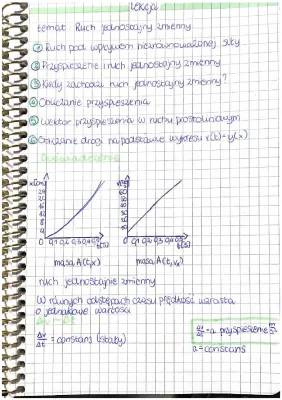 Lekcja
temat Ruch jednostajny zmienny
① Ruch pod wpływem niezrównoważonej siły
② Przyspieszenie i ruch jednostajny zmienny
③ Kiedy zachodzi ruch jednostajny zmienny?
④ Obliczanie przyspieszenia
⑤ Wektor przyspieszenia w ruchu prostoliniowym
⑥ Obliczanie drogi na podstawie wykresu
masa A(t,x) masa A(t,vₓ)
ruch jednostajnie zmienny
W równych odstępach czasu prędkość wzrasta
o jednakowe wartości
Δv/Δt = constans (stały)
Δv/Δt = a przyspieszenie
a = constans